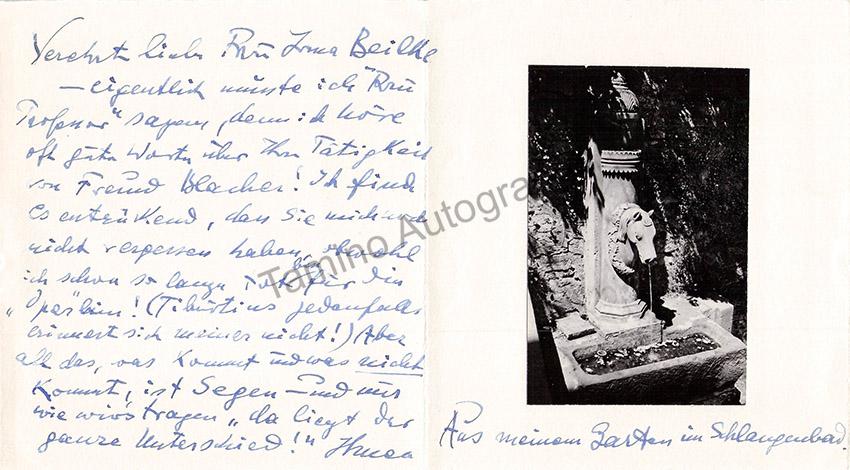 Verehrte liebe Frau Irma Beilke
– eigentlich müsste ich "Frau
Professor" sagen, denn ich höre
oft gute Worte über Ihre Tätigkeit
von Freund Blacher! Ich finde
es entzückend, dass Sie mich noch
nicht vergessen haben, obwohl
ich schon so lange tot bin für die
"Oper" bin! (Tiburtius jedenfalls
erinnert sich meiner nicht!) Aber
all das, was kommt und was nicht
kommt, ist Segen – und nur
wie wir's tragen "da liegt der
ganze Unterschied!" Ihnen
Aus meinem Garten in Schlangenbad
Tamino Autogra